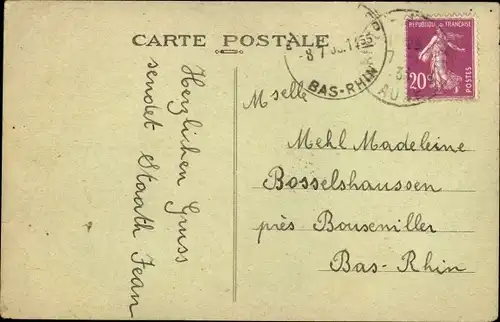 CARTE POSTALE
Herzlichen Gruss
sendet Staath Jean
BAS-RHIN
REPUBLIQUE FRANÇAISE
20c
POSTES
Mselle
Mehl Madeleine
Bosselshaussen
près Bouxwiller
Bas-Rhin